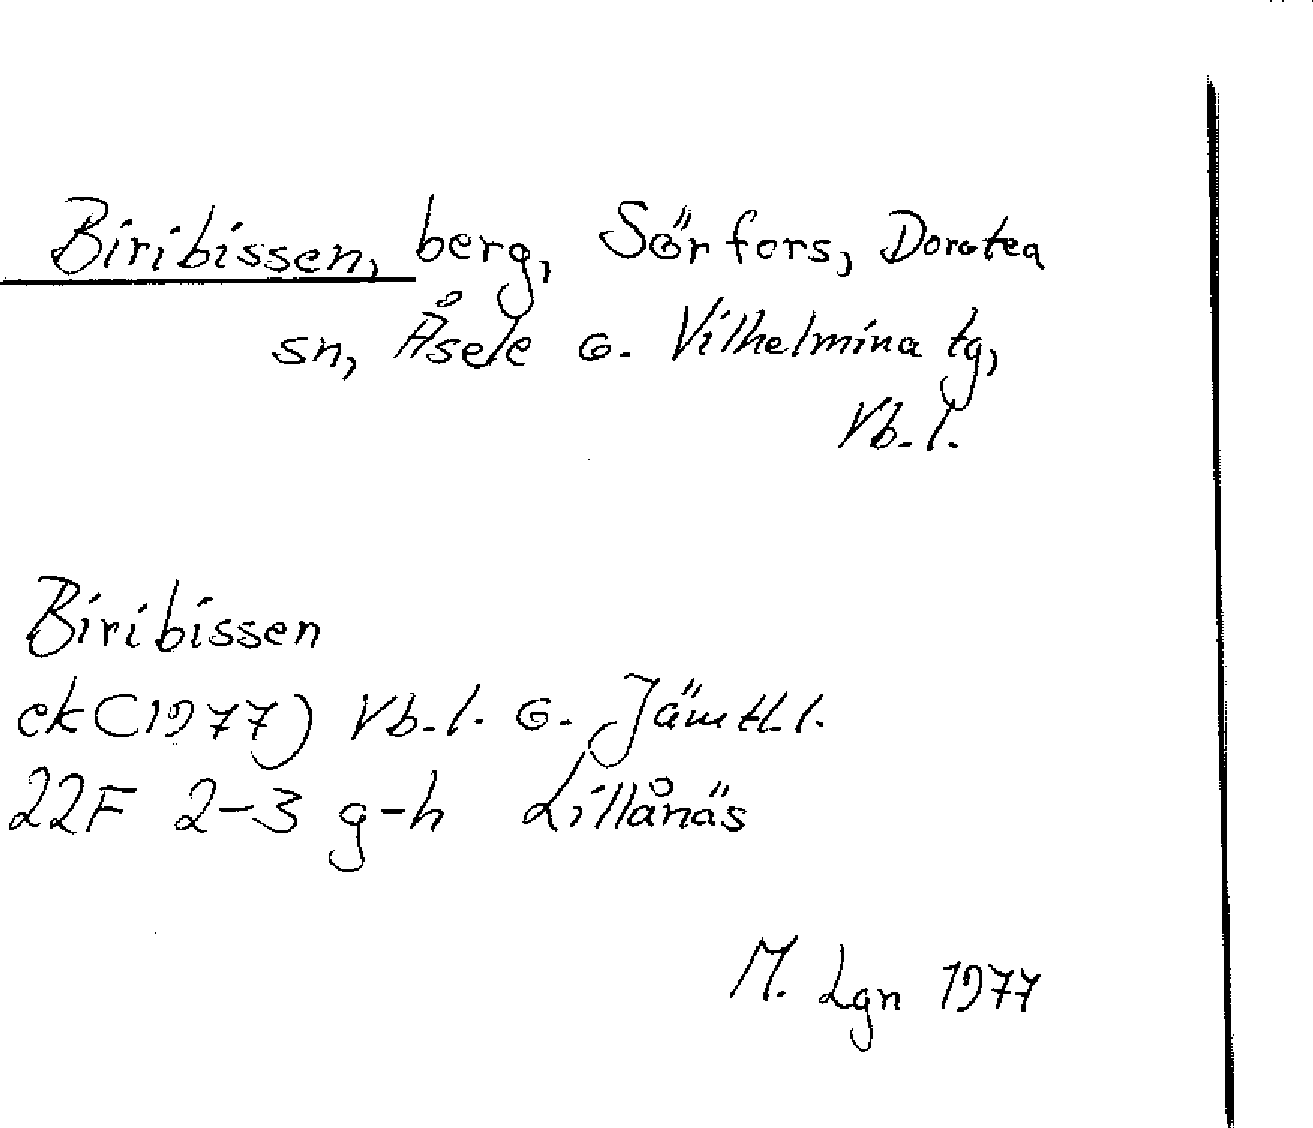 Biribissen, berg, Sörfors, Dorotea
sn, Åsele o. Vilhelmina tg,
Vb. l.
Biribissen
ek (1977) Vb. l. o. Jämtl. l.
22F 2-3 g-h Lillånäs
M. Lgn 1977